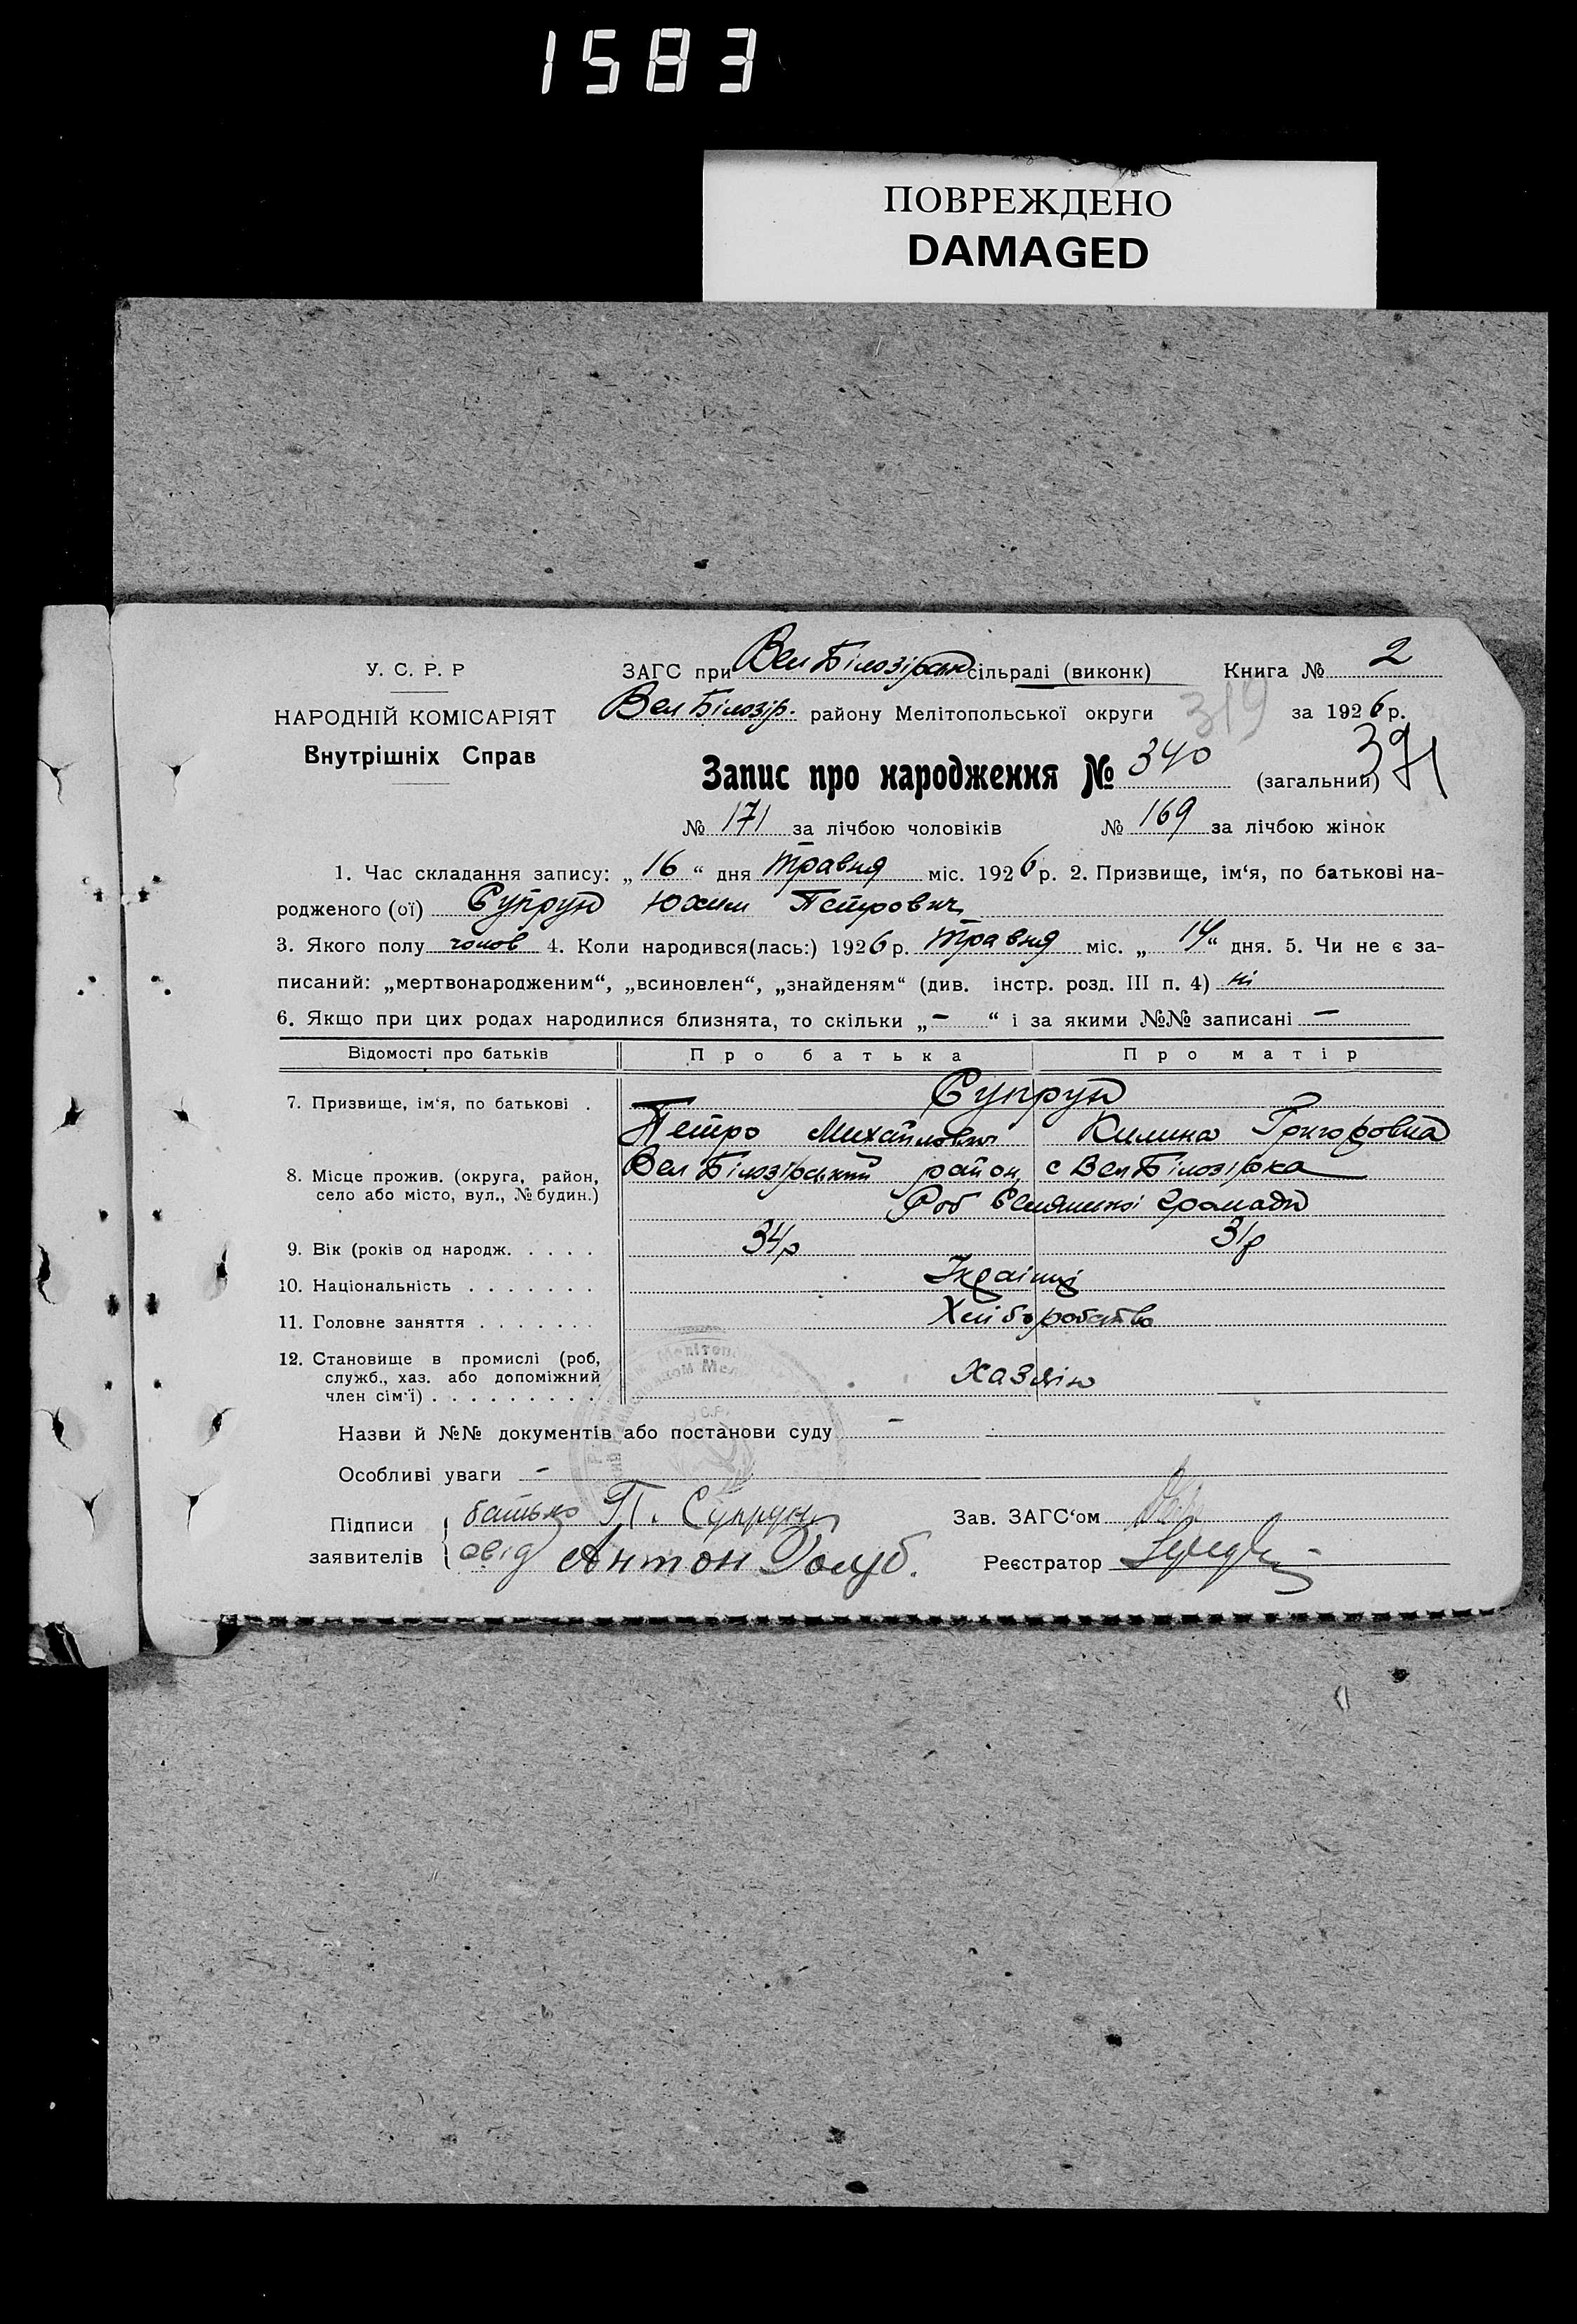 1583
ПОВРЕЖДЕНО
DAMAGED
У. С. Р. Р
НАРОДНІЙ КОМІСАРІЯТ
Внутрішніх Справ
ЗАГС при Вел Білозірськ сільраді (виконк) Книга № 2
Вел Білозір. району Мелітопольської округи 319 за 1926 р.
Запис про народження № 340 (загальний) 391
№ 171 за лічбою чоловіків № 169 за лічбою жінок
1. Час складання запису: „16“ дня травня міс. 1926 р. 2. Призвище, ім‘я, по батькові на-
родженого (ої) Супрун Юхим Петрович
3. Якого полу чолов 4. Коли народився(лась:) 1926 р. травня міс. „14“ дня. 5. Чи не є за-
писаний: „мертвонародженим“, „всиновлен“, „знайденям“ (див. інстр. розд. III п. 4) ні
6. Якщо при цих родах народилися близнята, то скільки „-“ і за якими №№ записані —
Відомості про батьків Про батька Про матір
7. Призвище, ім‘я, по батькові . Супрун
Петро Михайлович Килина Григоровна
8. Місце прожив. (округа, район, село або місто, вул., № будин.) Вел Білозірський район, с Вел Білозірка
громади
9. Вік (років од народж. . . . . 34р 31р
10. Національність . . . . . . . Українці
11. Головне заняття . . . . . . . Хліборобство
12. Становище в промислі (роб,
служб., хаз. або допоміжний
член сім‘ї) . . . . . . . . . Хазяін
Назви й №№ документів або постанови суду —
Особливі уваги —
Підписи заявителів батько П. Супрун
свід Антон Голуб.
Зав. ЗАГС‘ом
Реєстратор